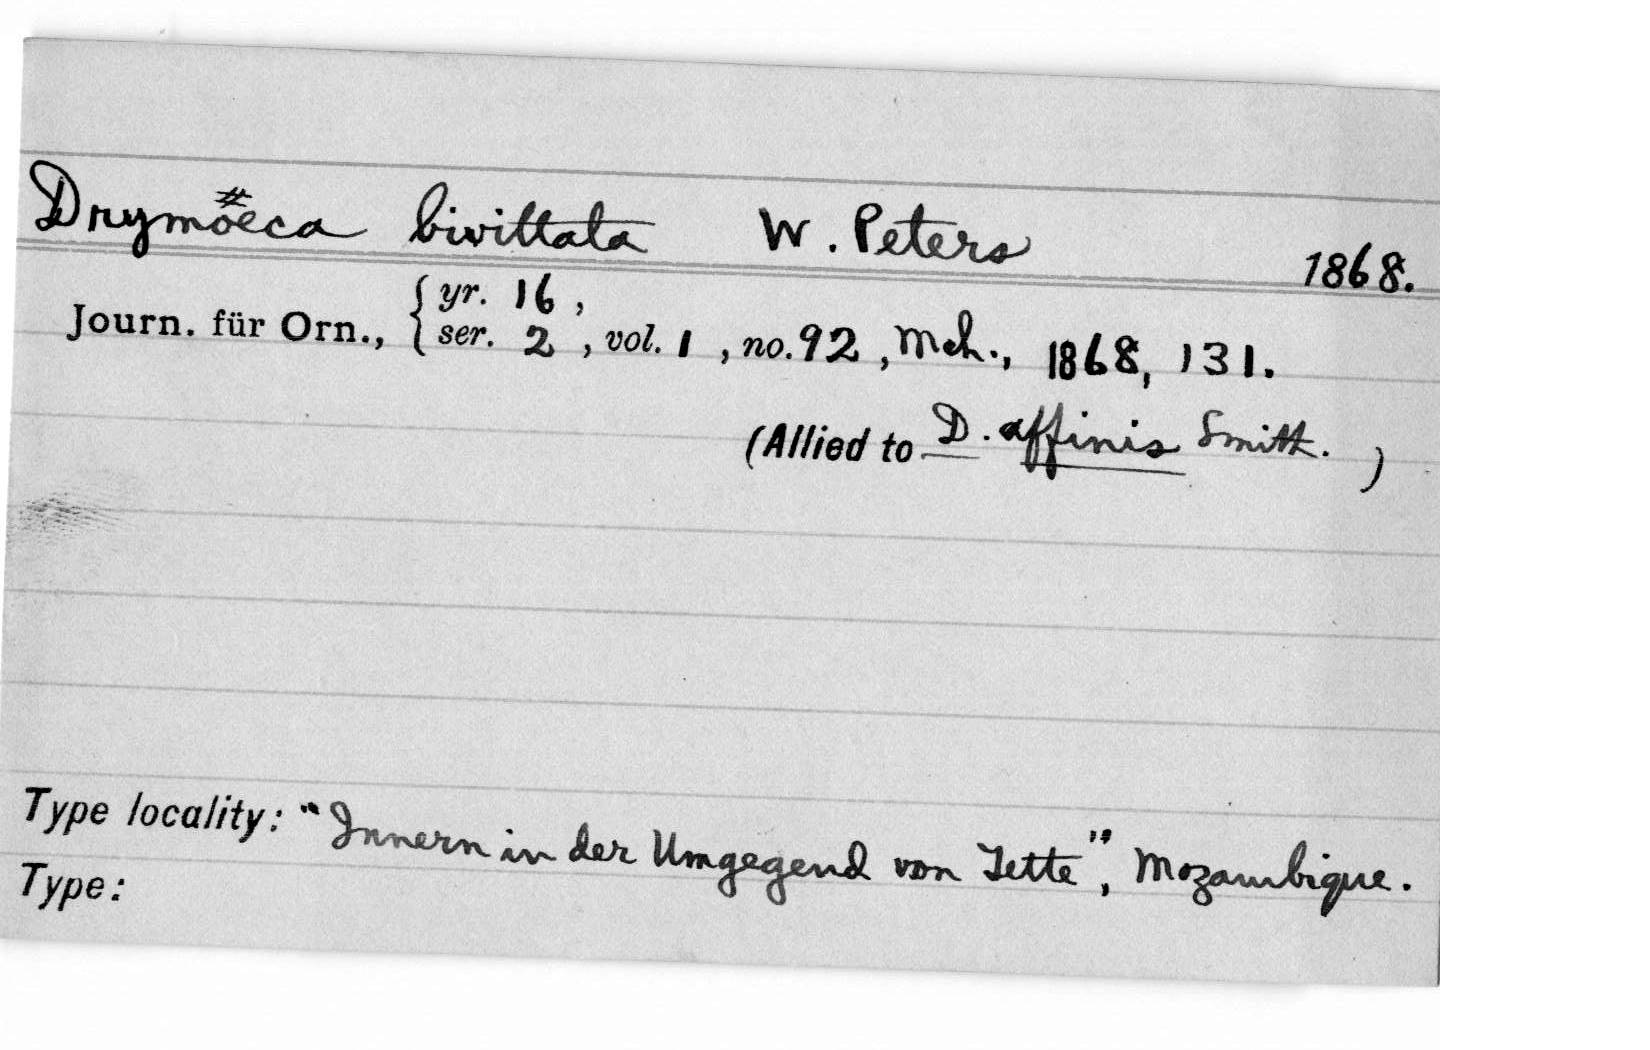 Drymöeca bivittata W. Peters 1868.
Journ. für Orn., { yr. 16 ,
ser. 2 , vol. 1 , no. 92 , Mch., 1868, 131.
(Allied to D. affinis Smith. )
Type locality: "Innern in der Umgegend von Tette", Mozambique.
Type: